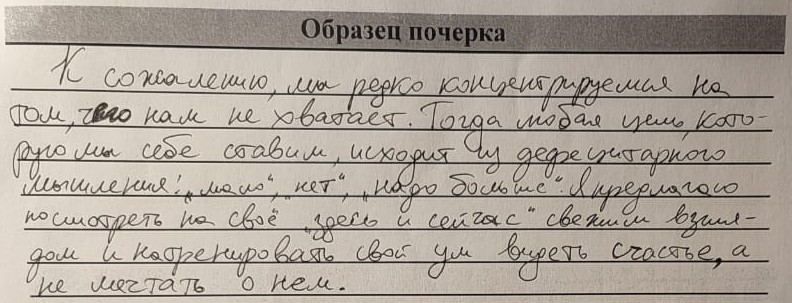 Образец почерка
К сожалению, мы редко концентрируемся на
том, чего нам не хватает. Тогда любая цель, кото-
рую мы себе ставим, исходит из дефицитарного
мышления: „мало“, „нет“, „надо больше“. Я предлагаю
посмотреть на своё „здесь и сейчас“ свежим взгля-
дом и натренировать свой ум видеть счастье, а
не мечтать о нем.